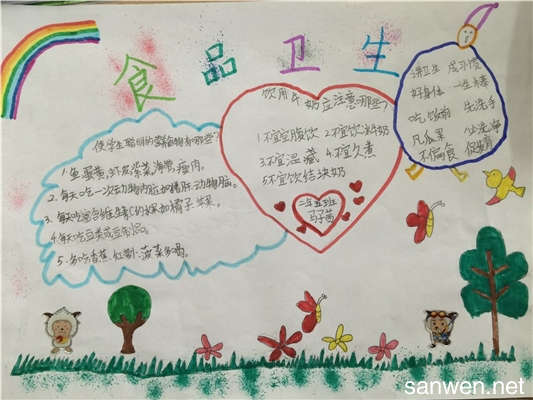 食品卫生
使学生聪明的营养物有哪些?
1.鱼蛋黄,虾皮紫菜,海带,瘦肉。
2.每天吃一次动物内脏如猪肝,动物脑。
3.每天吃富含维生素C的水果如橘子 苹果。
4.每天吃豆类或豆制品。
5.多吃香蕉,红割,菠菜
饮用牛奶应注意哪些?
1.不宜空腹饮 2.不宜饮冰奶
3.不宜温藏 4.不宜久煮
5.不宜饮结块奶
二年五班
讲卫生 成习惯
好身体 一生棒
吃饭前 先洗手
凡瓜果 必洗净
不偏食 保健
sanwen.net